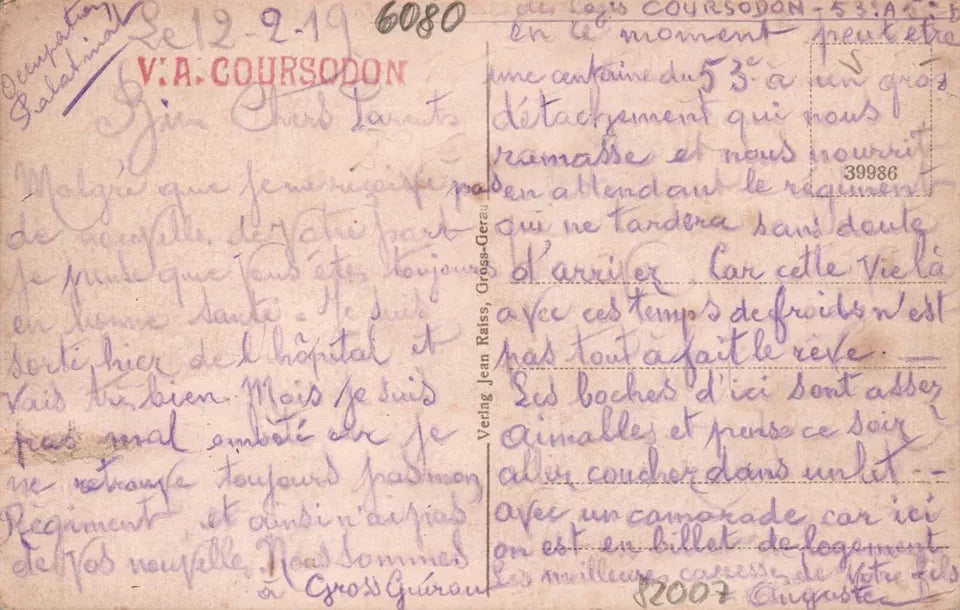 Occupation
Palatinat
Le 12-2-19
6080
V. A. COURSODON
Bien Chers Parents
Malgré que je ne reçoive pas
de nouvelle de votre part
je pense que vous êtes toujours
en bonne santé. Je suis
sorti hier de l'hôpital et
vais très bien. Mais je suis
pas mal embêté car je
ne retrouve toujours pas mon
Régiment et ainsi n'ai pas
de vos nouvelle. Nous sommes
à Gross Guérau
Verlag Jean Raiss, Gross-Gerau
des Logis COURSODON - 53e A
en ce moment peut être
une centaine du 53e à un gros
détachement qui nous
ramasse et nous nourrit
39986
en attendant le régiment
qui ne tardera sans doute
d'arriver. Car cette vie là
avec ces temps de froids n'est
pas tout à fait le rêve. —
Les boches d'ici sont assez
aimables et pense ce soir
aller coucher dans un lit --
avec un camarade car ici
on est en billet de logement
Les meilleures caresses de votre fils
82007
Auguste